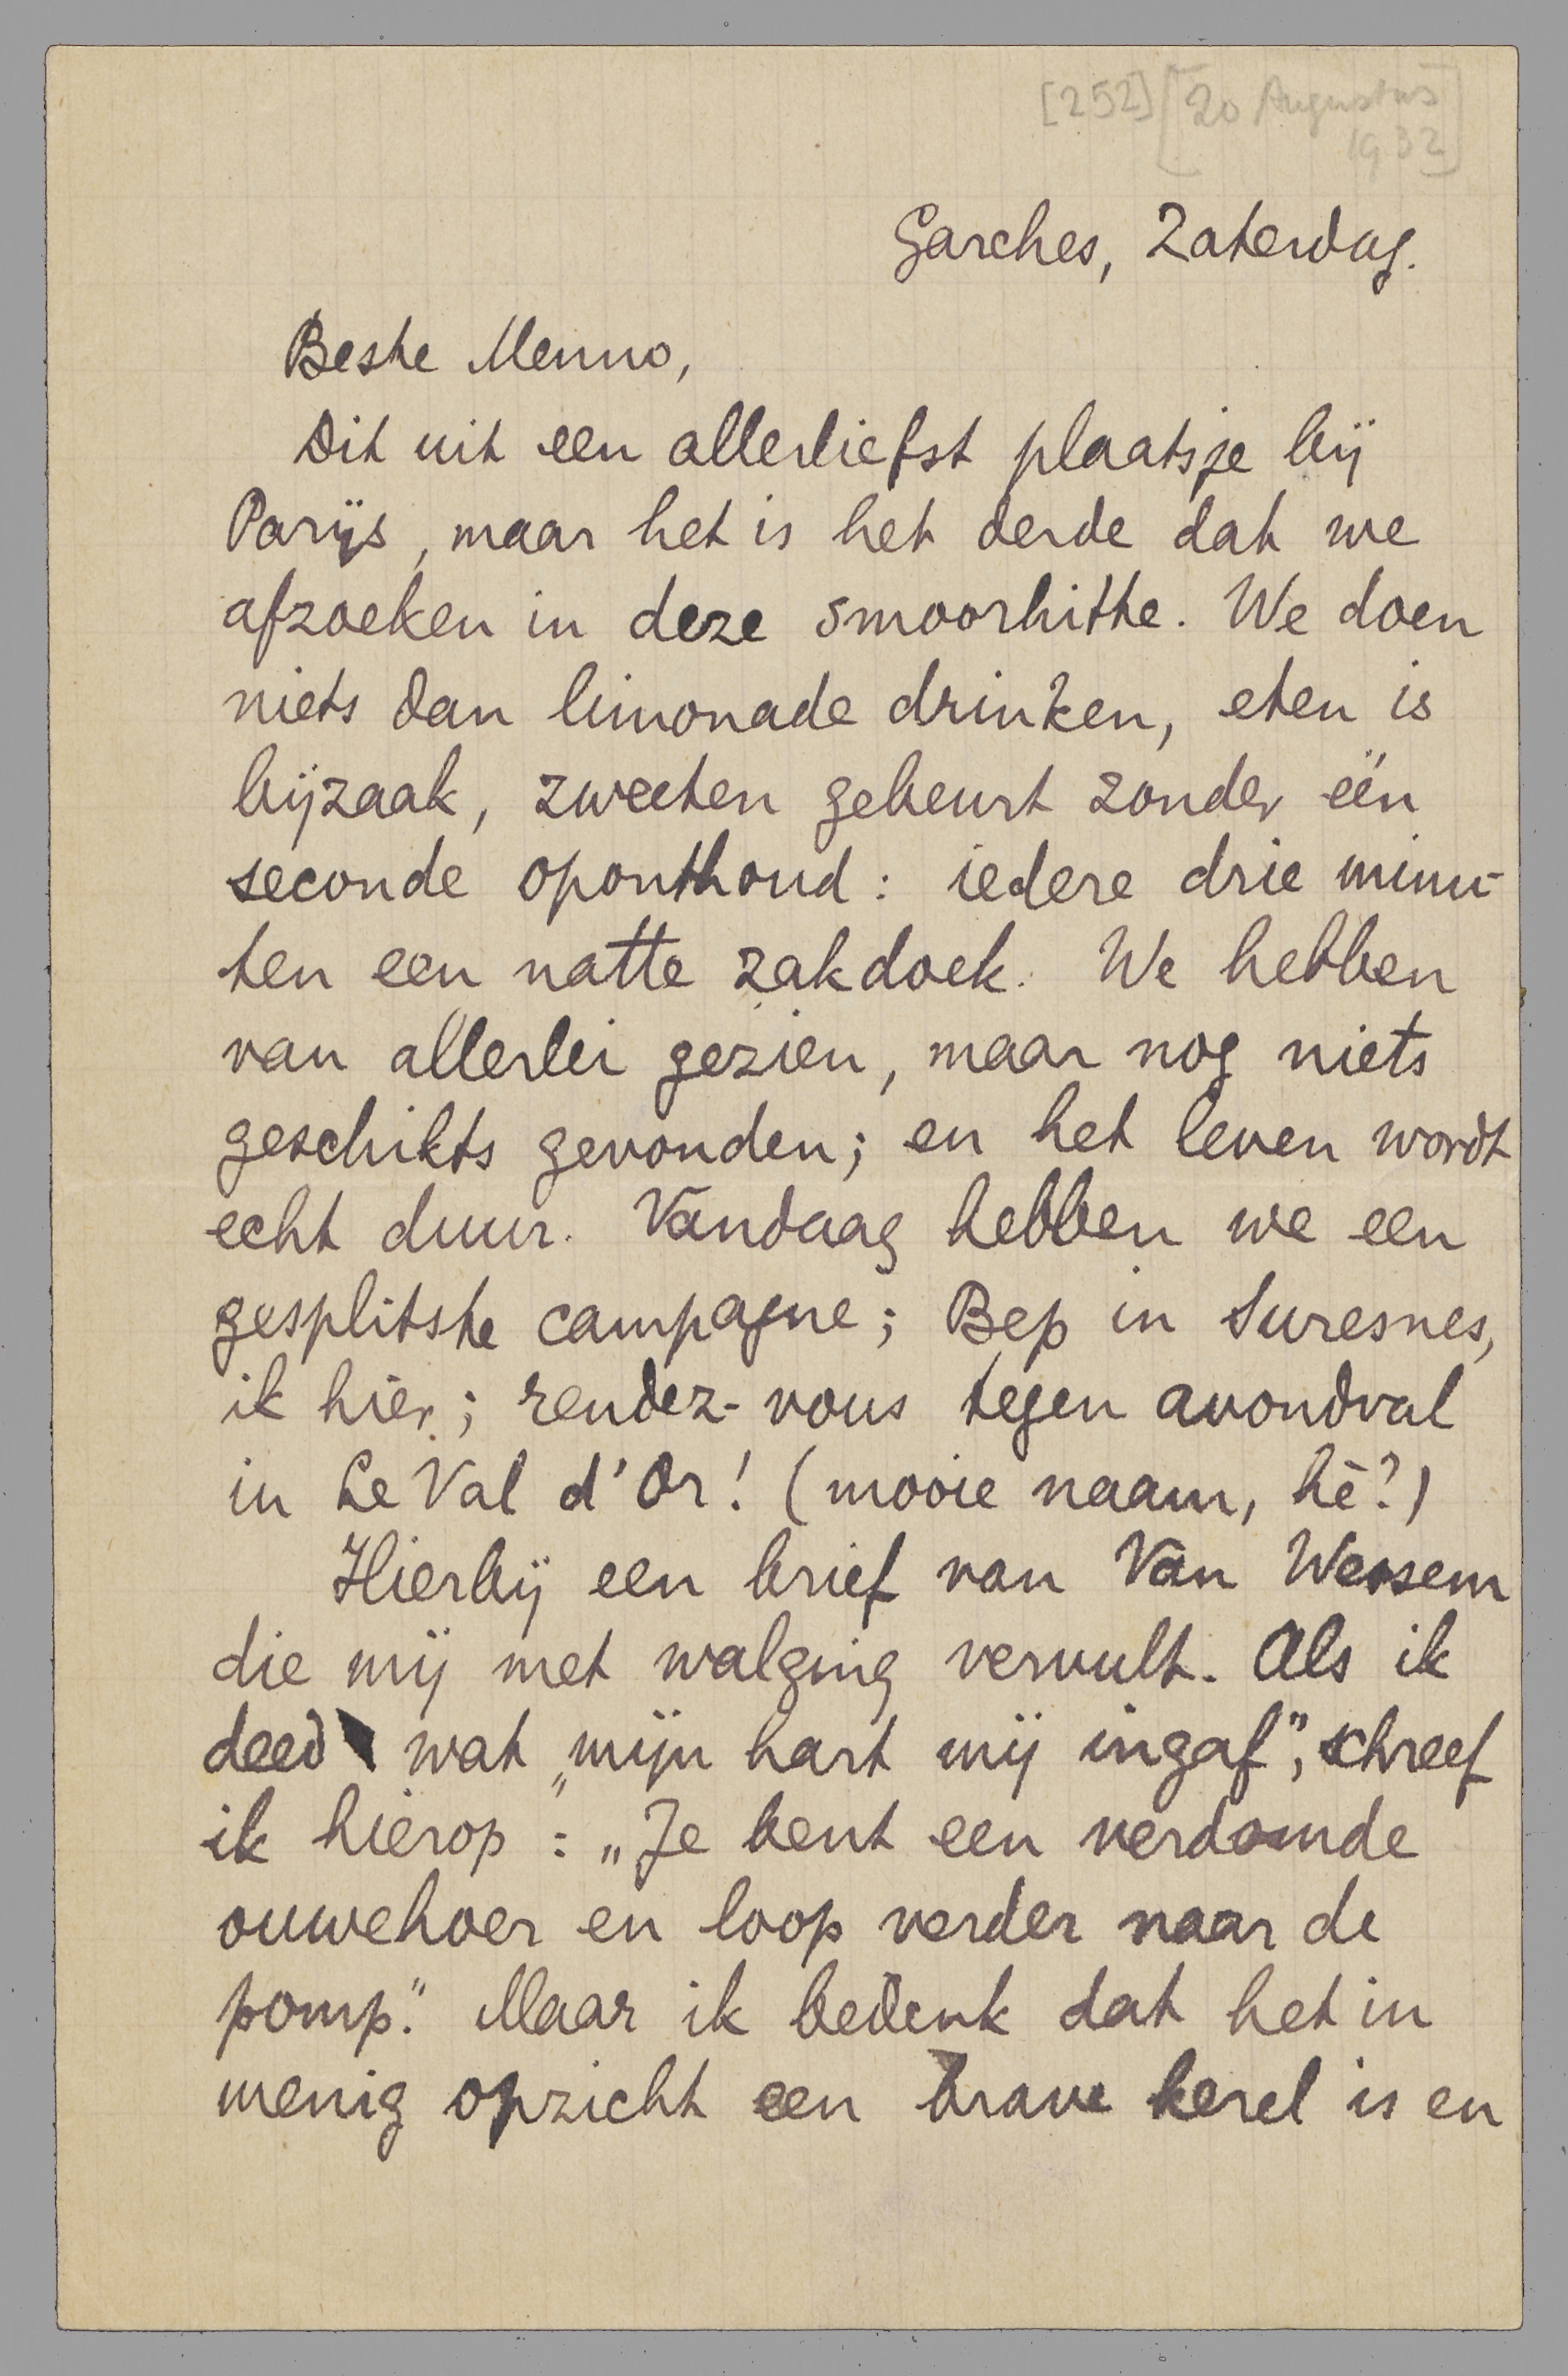 [252] [20 Augustus
1932]
Garches, Zaterdag.
Beste Menno,
Dit uit een allerliefst plaatsje bij
Parijs, maar het is het derde dat we
afzoeken in deze smoorhitte. We doen
niets dan limonade drinken, eten is
bijzaak, zweeten gebeurt zonder één
seconde oponthoud: iedere drie minu-
ten een natte zakdoek. We hebben
van allerlei gezien, maar nog niets
geschikts gevonden; en het leven wordt
echt duur. Vandaag hebben we een
gesplitste campagne; Bep in Suresnes,
ik hier; rendez-vous tegen avondval
in Le Val d'Or! (mooie naam, hè?)
Hierbij een brief van Van Wessem
die mij met walging vervult. Als ik
deed wat „mijn hart mij ingaf”, schreef
ik hierop: „Je bent een verdomde
ouwehoer en loop verder naar de
pomp.” Maar ik bedenk dat het in
menig opzicht een brave kerel is en